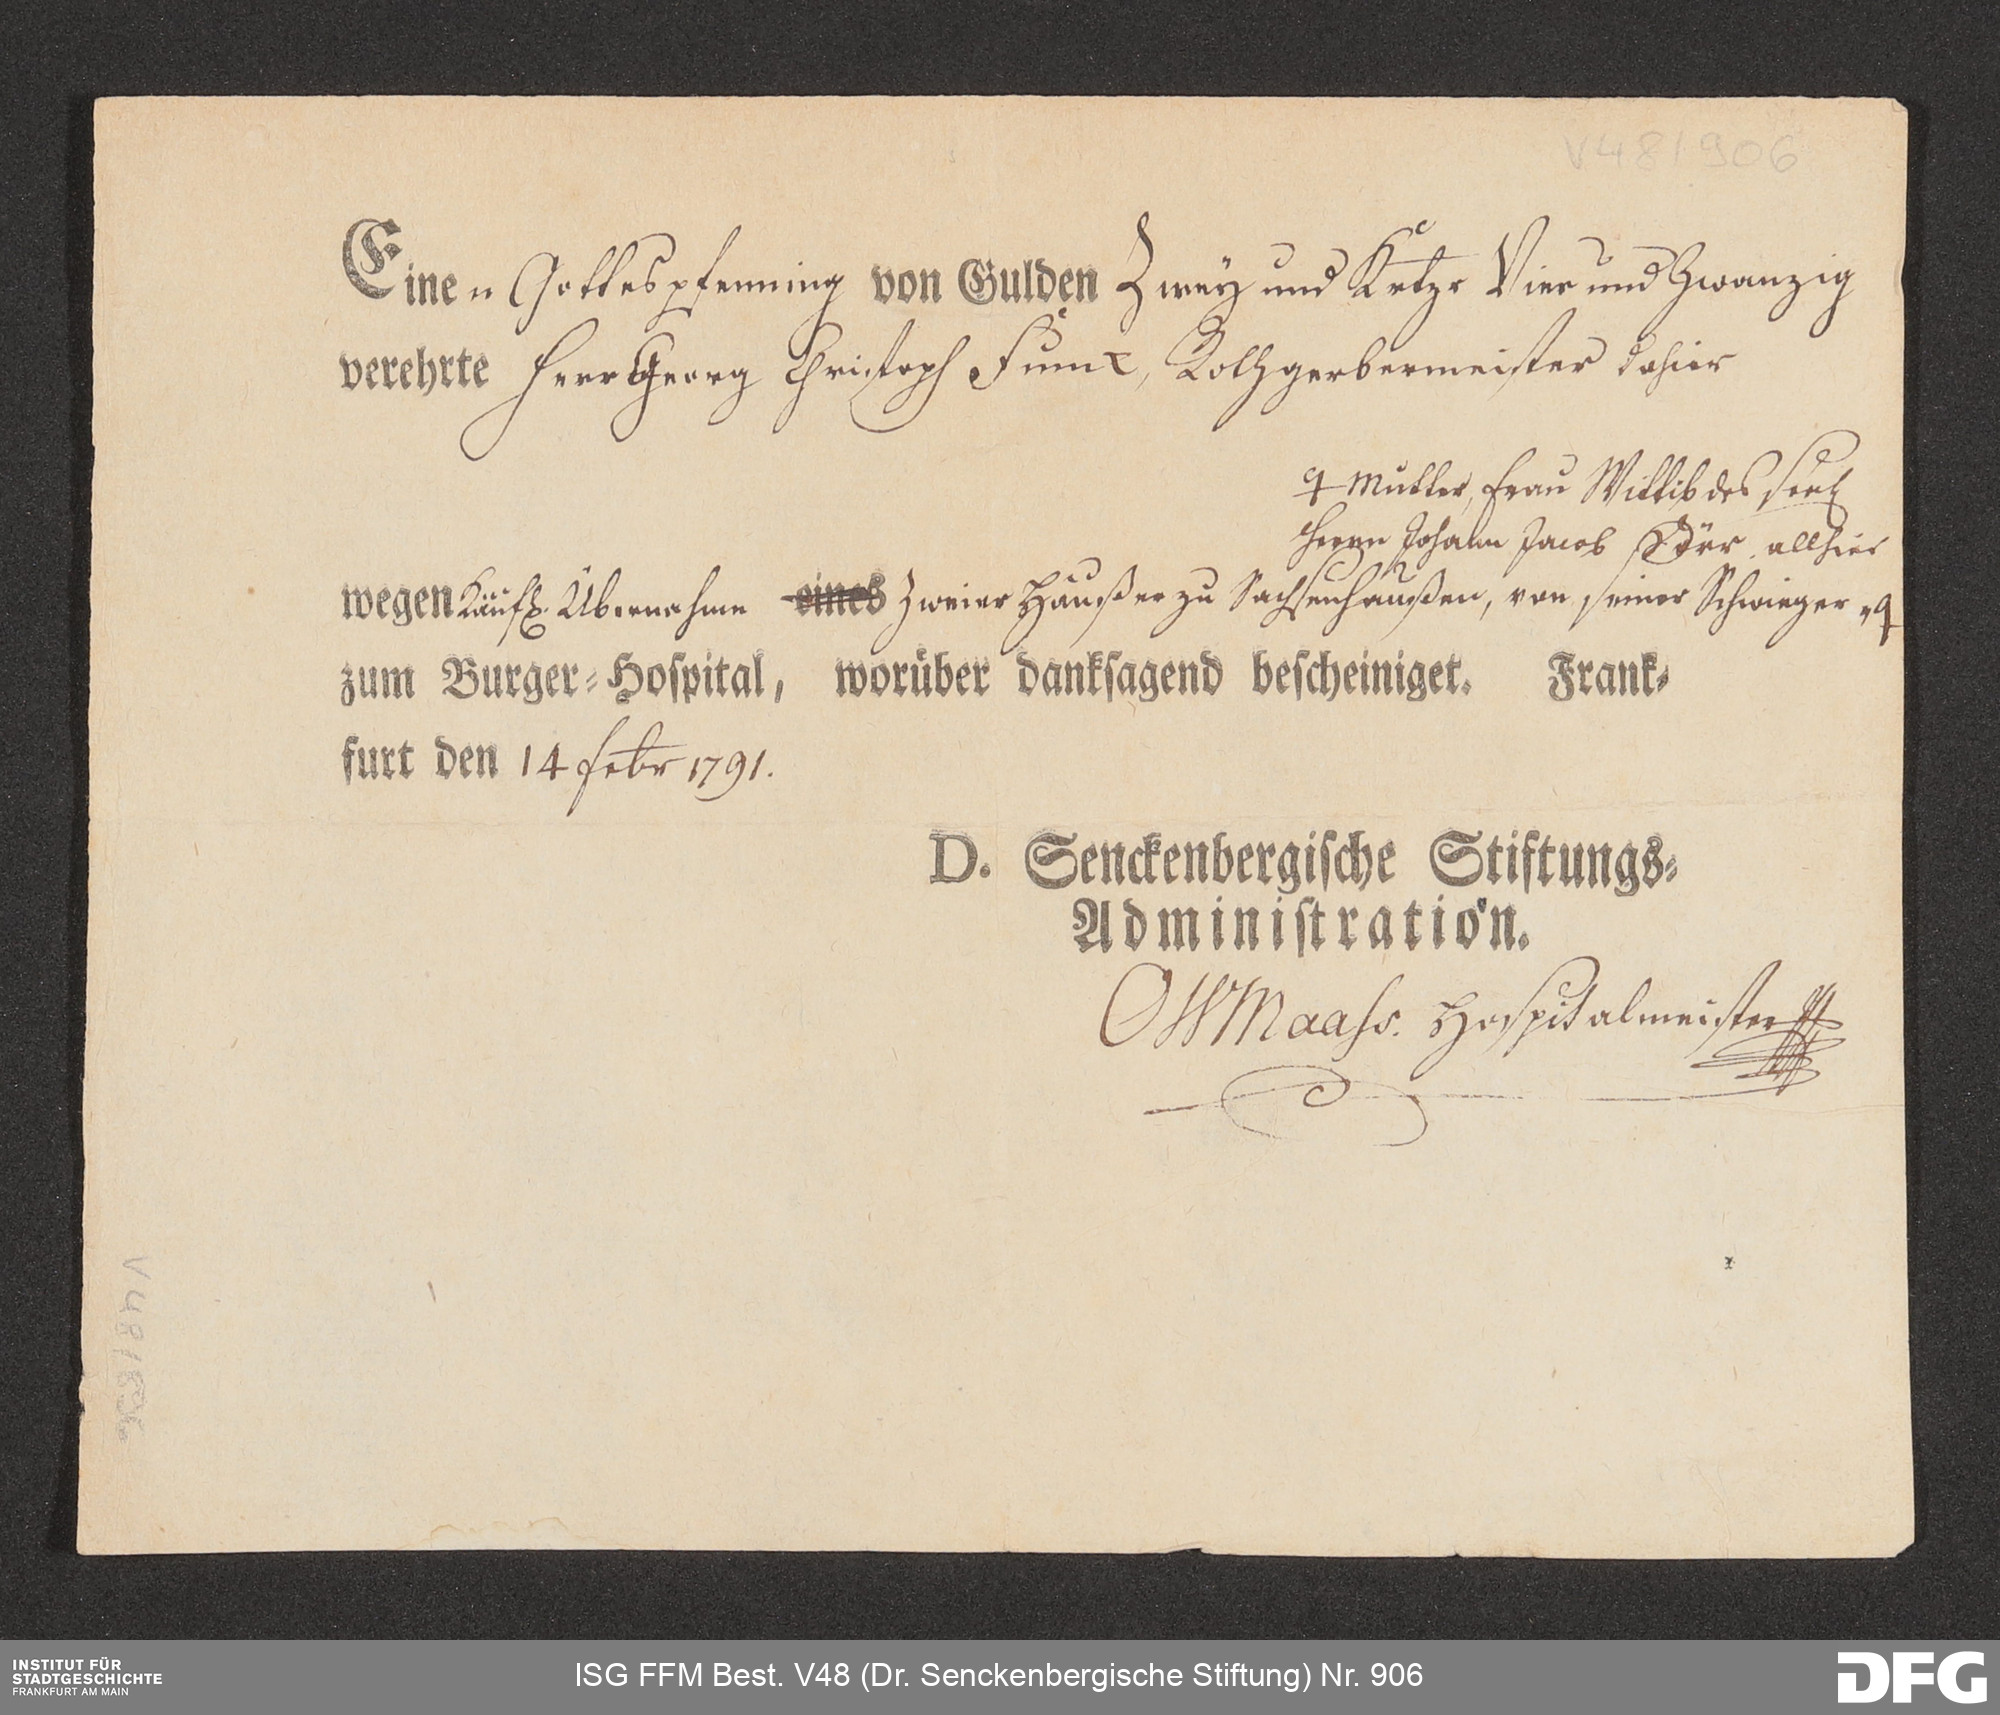 V48/906
Einen Gottespfenning von Gulden Zwey und Krtzr Vier und Zwanzig
verehrte Herr Georg Christoph Funck, Rothgerbermeister dahier
Mutter, Frau Wittib des seel
Herrn Johann Jacob Dörr allhier
wegen Käufl. Übernahme eines Zweier Häußer zu Sachsenhaußen, von seiner Schwieger
zum Burger-Hospital, worüber danksagend bescheiniget. Frank-
furt den 14 Febr 1791.
D. Senckenbergische Stiftungs-
Administration.
Maass. Hospitalmeister
V48/
INSTITUT FÜR
STADTGESCHICHTE
FRANKFURT AM MAIN
ISG FFM Best. V48 (Dr. Senckenbergische Stiftung) Nr. 906
DFG